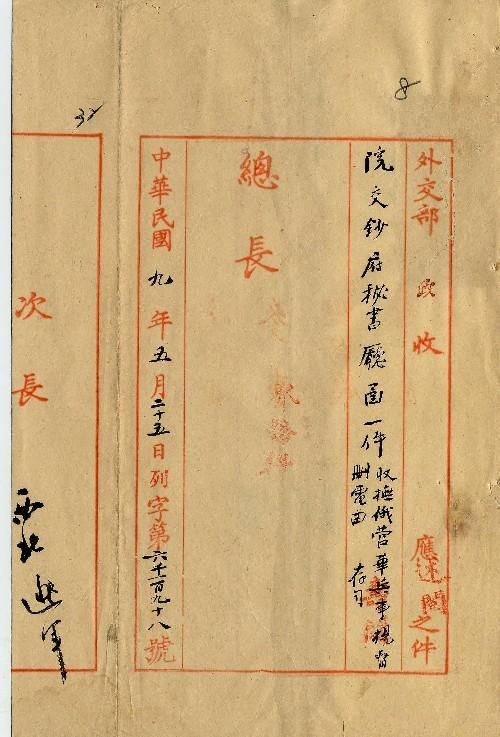 8
外交部 政 收 應送閱之件
院交鈔府秘書廳函一件 收撫俄營華兵事楊督
刪電由 存司
總長
中華民國九年五月二十五日列字第六千一百九十八號
次長